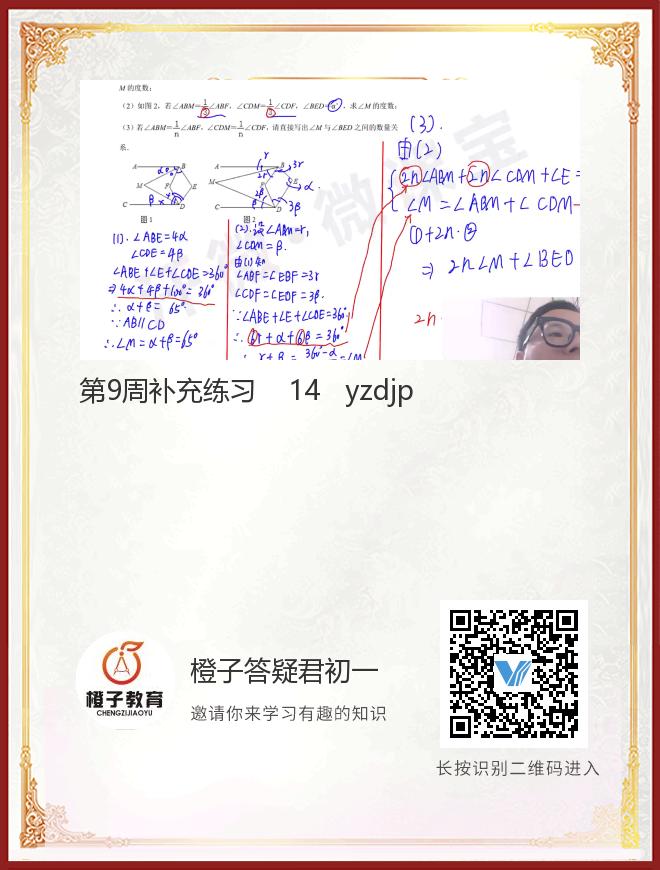 M 的度数;
(2) 如图 2，若∠ABM=1/3∠ABF，∠CDM=1/3∠CDF，∠BED=α°，求∠M 的度数;
(3) 若∠ABM=1/n∠ABF，∠CDM=1/n∠CDF，请直接写出∠M 与∠BED 之间的数量关
系.
图 1
图 2
(1). ∠ABE=4α
∠CDE=4β
∠ABE+∠E+∠CDE=360°
⇒4α+4β+100°=360°
∴α+β= 65°
∵AB∥CD
∴∠M=α+β=65°
(2). 设∠ABM=r,
∠CDM=β.
由(1)知
∠ABF=∠EBF=3r
∠CDF=∠EDF=3β.
∵∠ABE+∠E+∠CDE=360°
∴6r+α+6β=360°
∴r+β=360°-α
(3).
由(2)
2n∠ABM+2n∠CDM+∠E=
∠M=∠ABM+∠CDM
①+2n·②
⇒ 2n∠M+∠BED
2n
第9周补充练习 14 yzdjp
橙子教育
CHENGZIJIAOYU
橙子答疑君初一
邀请你来学习有趣的知识
长按识别二维码进入